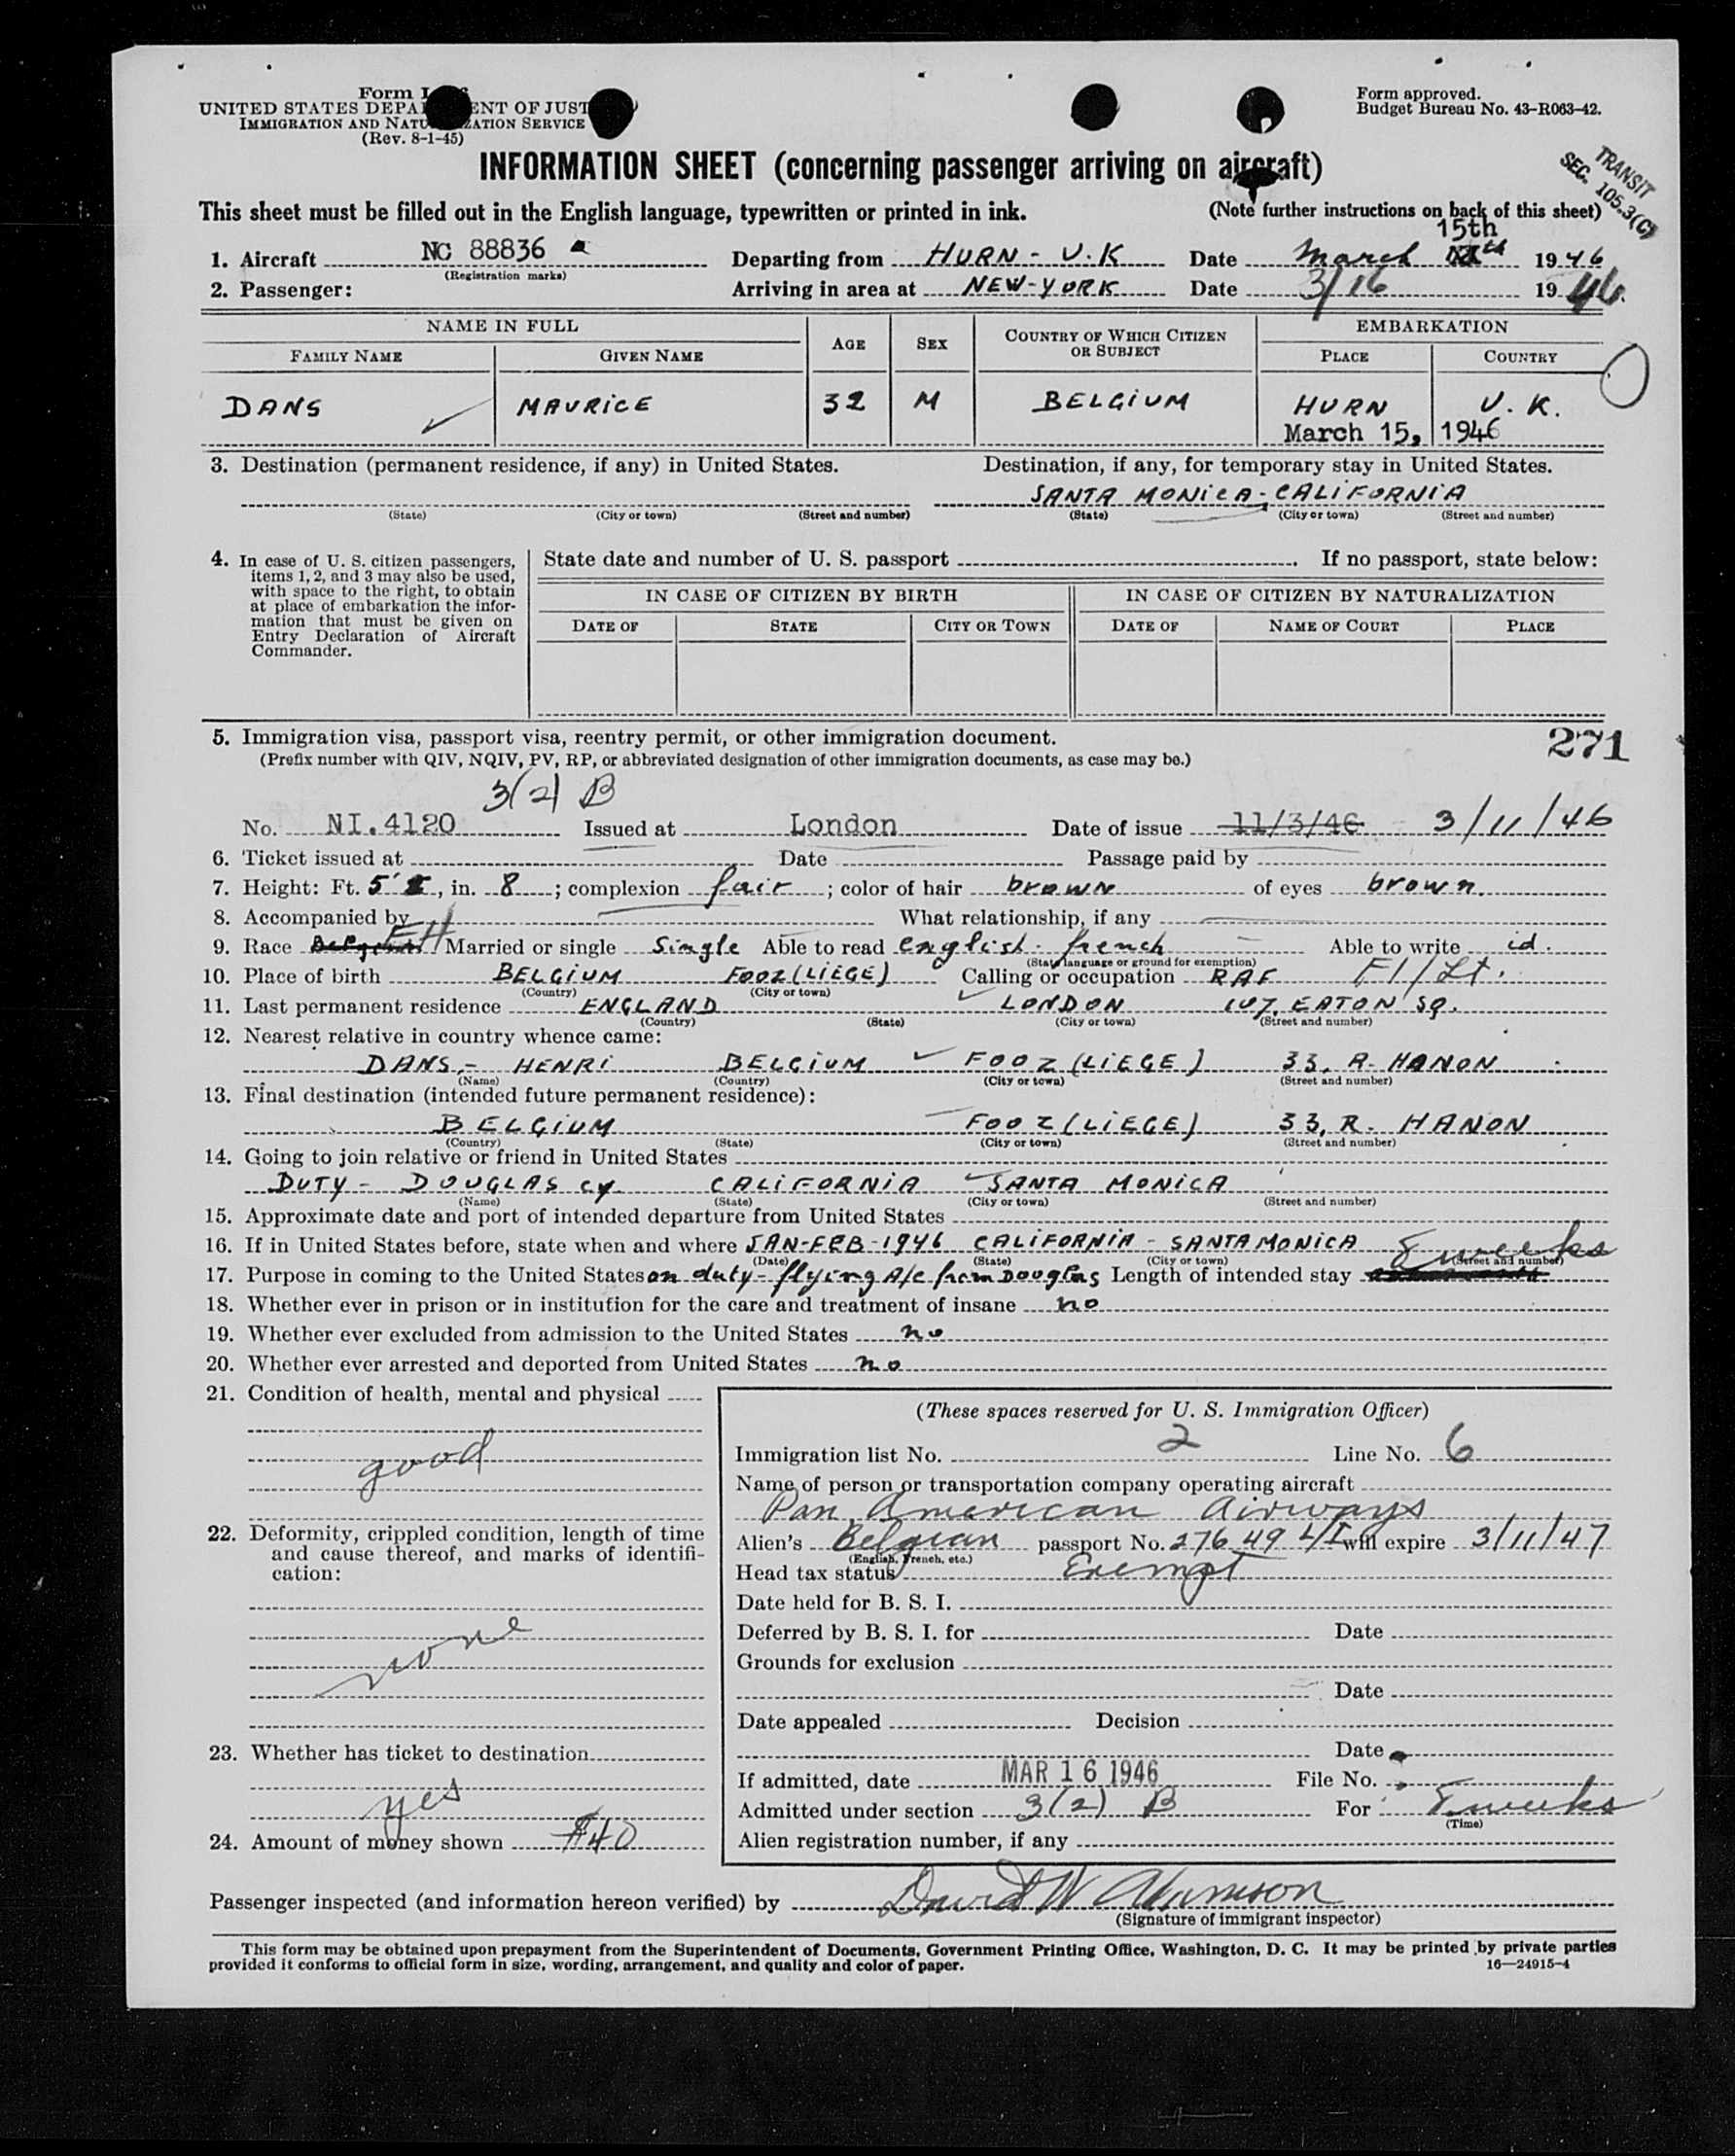 Form I
UNITED STATES DEPA ENT OF JUST
IMMIGRATION AND NATU ZATION SERVICE
(Rev. 8-1-45)
Form approved.
Budget Bureau No. 43-R063-42.
TRANSIT
SEC. 105.3(C)
INFORMATION SHEET (concerning passenger arriving on aircraft)
This sheet must be filled out in the English language, typewritten or printed in ink. (Note further instructions on back of this sheet)
15th
1. Aircraft NC 88836 Departing from HURN - U.K Date March 1946
(Registration marks)
2. Passenger: Arriving in area at NEW-YORK Date 3/16 1946.
NAME IN FULL AGE SEX COUNTRY OF WHICH CITIZEN OR SUBJECT EMBARKATION
FAMILY NAME GIVEN NAME PLACE COUNTRY
DANS MAURICE 32 M BELGIUM HURN U.K.
March 15, 1946
3. Destination (permanent residence, if any) in United States. Destination, if any, for temporary stay in United States.
SANTA MONICA - CALIFORNIA
(State) (City or town) (Street and number) (State) (City or town) (Street and number)
4. In case of U. S. citizen passengers,
items 1, 2, and 3 may also be used,
with space to the right, to obtain
at place of embarkation the infor-
mation that must be given on
Entry Declaration of Aircraft
Commander.
State date and number of U. S. passport . If no passport, state below:
IN CASE OF CITIZEN BY BIRTH IN CASE OF CITIZEN BY NATURALIZATION
DATE OF STATE CITY OR TOWN DATE OF NAME OF COURT PLACE
5. Immigration visa, passport visa, reentry permit, or other immigration document. 271
(Prefix number with QIV, NQIV, PV, RP, or abbreviated designation of other immigration documents, as case may be.)
3(2) B
No. NI.4120 Issued at London Date of issue 11/3/46 3/11/46
6. Ticket issued at Date Passage paid by
7. Height: Ft. 5', in. 8; complexion fair; color of hair brown of eyes brown.
8. Accompanied by What relationship, if any
9. Race Married or single Single Able to read english - french Able to write id.
(State language or ground for exemption)
10. Place of birth BELGIUM FOOZ (LIÈGE) Calling or occupation RAF Fl/Lt.
(Country) (City or town)
11. Last permanent residence ENGLAND LONDON 107, EATON SQ.
(Country) (State) (City or town) (Street and number)
12. Nearest relative in country whence came:
DANS - HENRI BELGIUM FOOZ (LIEGE) 33, R. HANON
(Name) (Country) (City or town) (Street and number)
13. Final destination (intended future permanent residence):
BELGIUM FOOZ (LIEGE) 33, R. HANON
(Country) (State) (City or town) (Street and number)
14. Going to join relative or friend in United States
DUTY - DOUGLAS CY CALIFORNIA SANTA MONICA
(Name) (State) (City or town) (Street and number)
15. Approximate date and port of intended departure from United States
16. If in United States before, state when and where JAN-FEB-1946 CALIFORNIA - SANTA MONICA
(Date) (State) (City or town) (Street and number)
8 weeks
17. Purpose in coming to the United States on duty - flying A/c from Douglas Length of intended stay
18. Whether ever in prison or in institution for the care and treatment of insane no
19. Whether ever excluded from admission to the United States no
20. Whether ever arrested and deported from United States no
21. Condition of health, mental and physical
good
22. Deformity, crippled condition, length of time
and cause thereof, and marks of identifi-
cation:
none
23. Whether has ticket to destination
yes
24. Amount of money shown $40
(These spaces reserved for U. S. Immigration Officer)
Immigration list No. 2 Line No. 6
Name of person or transportation company operating aircraft
Pan American Airways
Alien's Belgian passport No. 27649 L/I will expire 3/11/47
(English, French, etc.)
Head tax status Exempt
Date held for B. S. I.
Deferred by B. S. I. for Date
Grounds for exclusion
Date
Date appealed Decision
Date
If admitted, date MAR 16 1946 File No.
Admitted under section 3(2) B For 8 weeks
(Time)
Alien registration number, if any
Passenger inspected (and information hereon verified) by David W
(Signature of immigrant inspector)
This form may be obtained upon prepayment from the Superintendent of Documents, Government Printing Office, Washington, D. C. It may be printed by private parties
provided it conforms to official form in size, wording, arrangement, and quality and color of paper. 16—24915-4